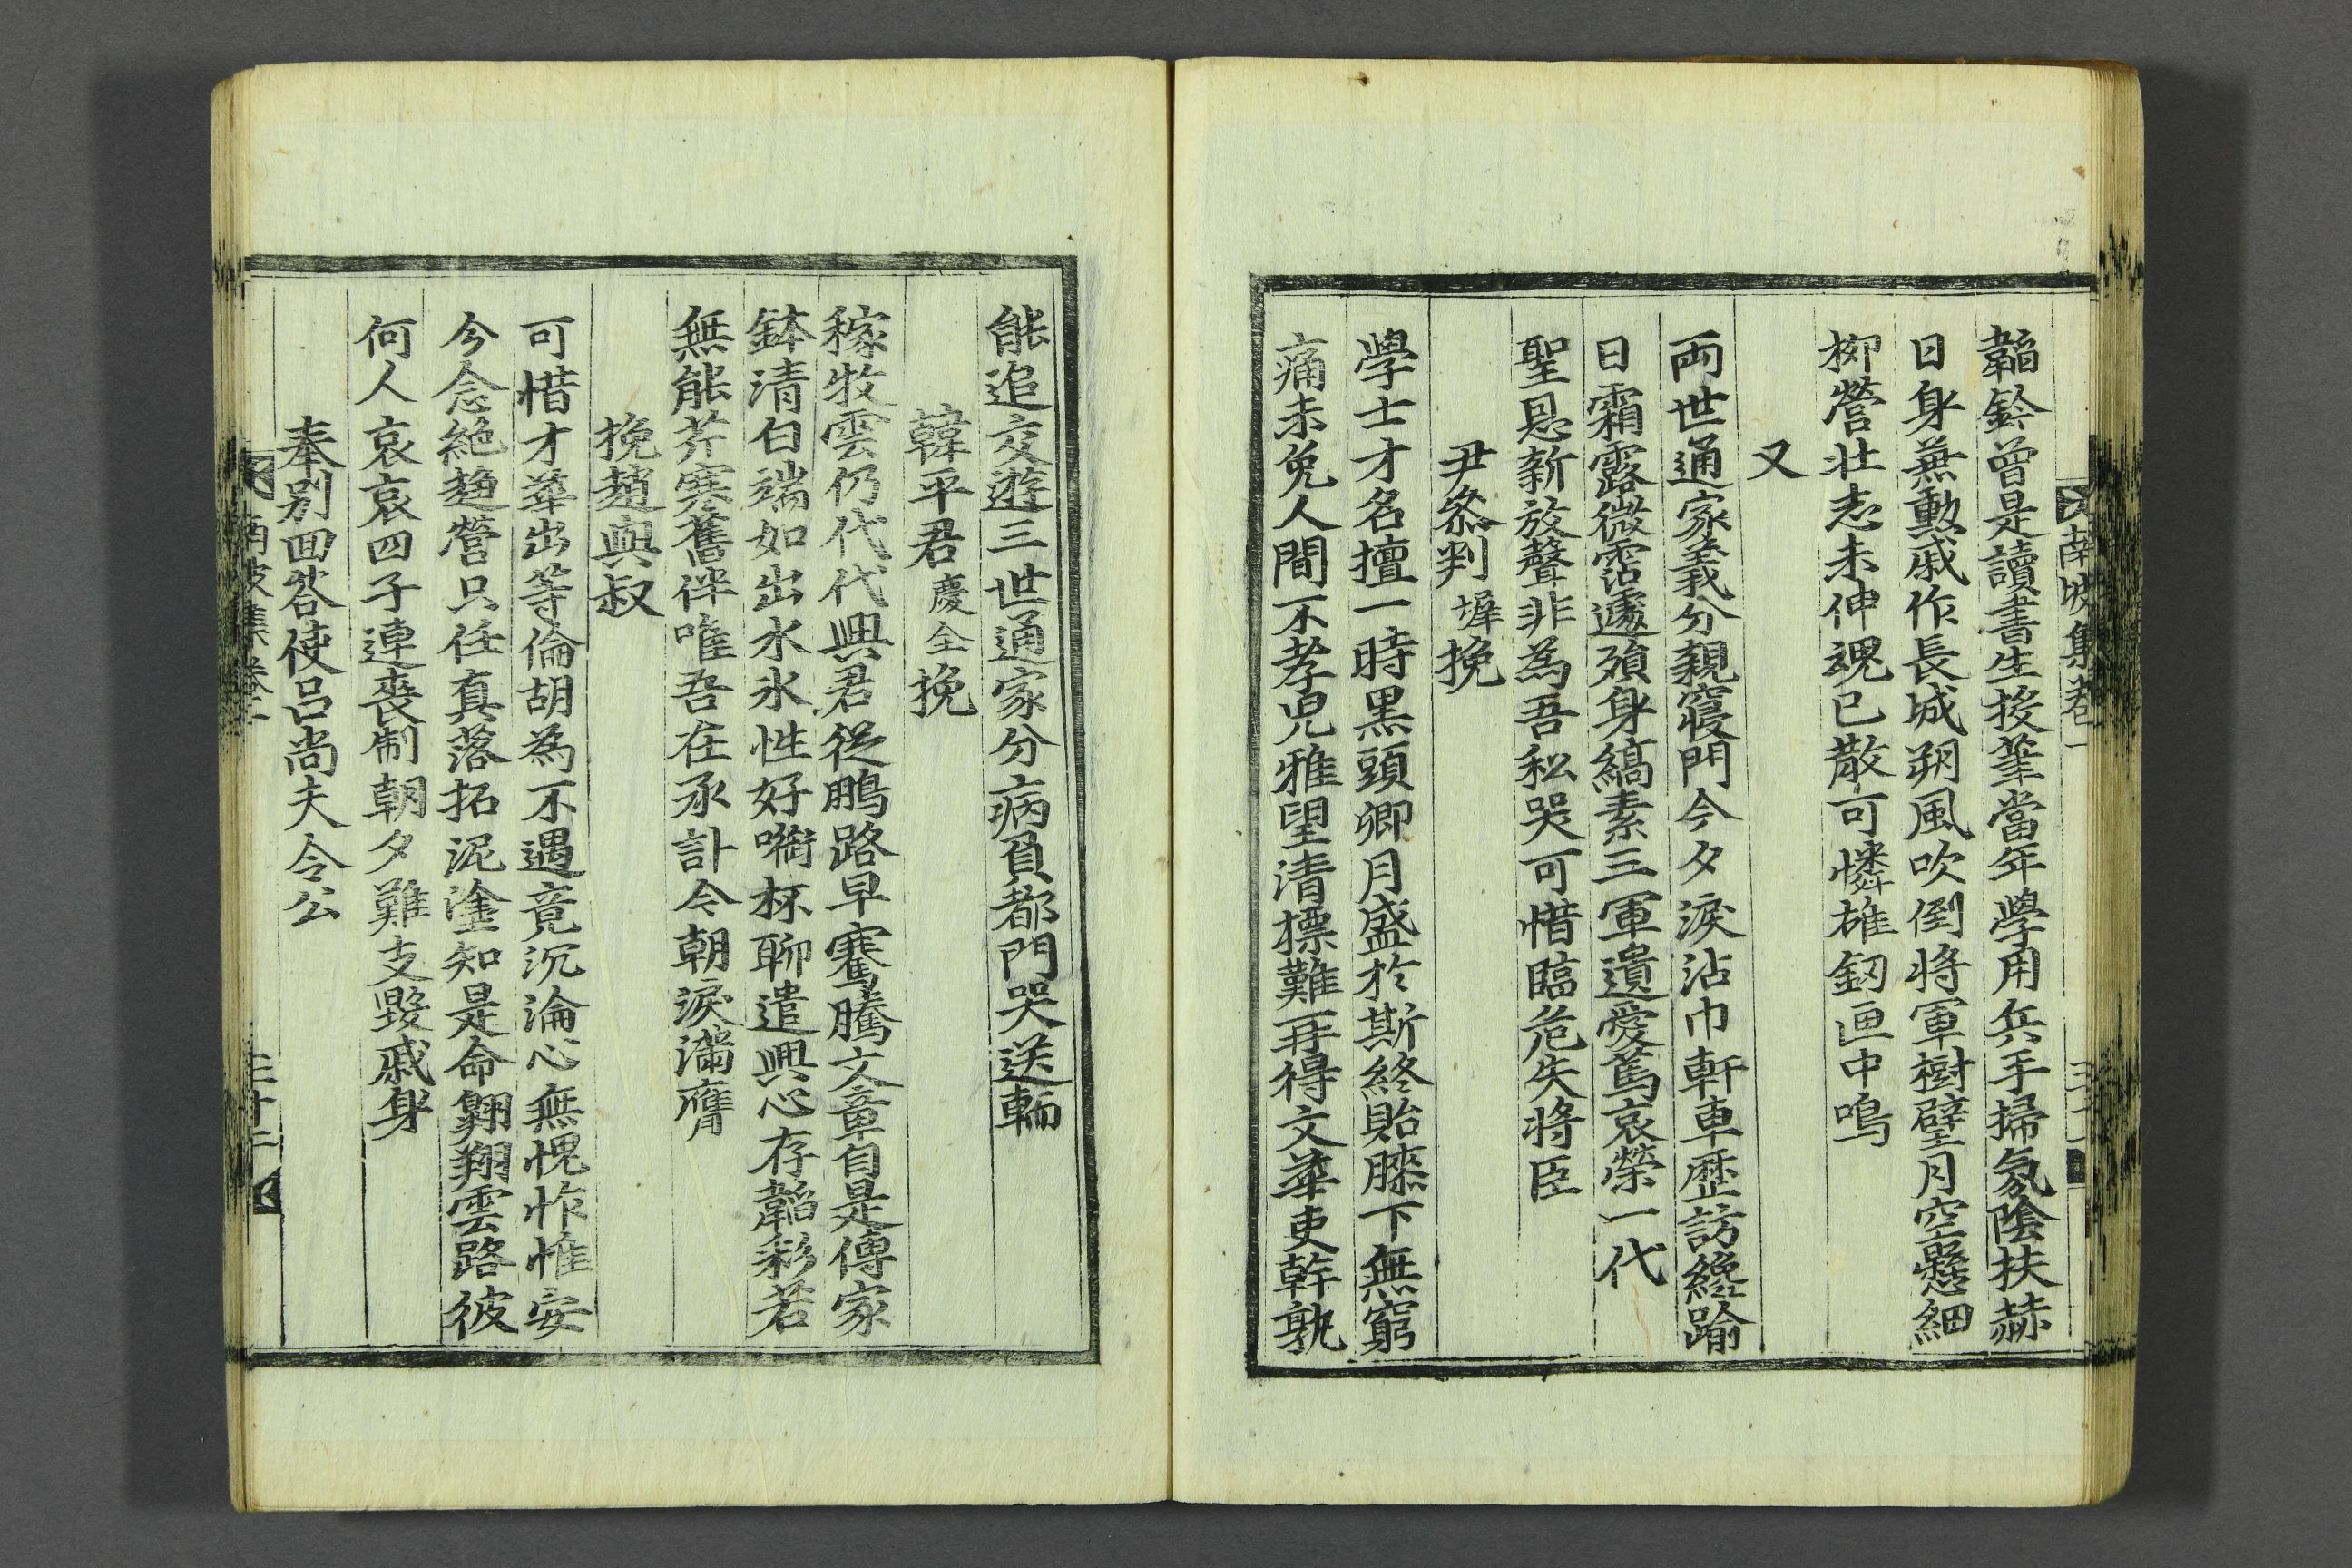 南坡集卷一
三十一
韜鈐曾是讀書生投筆當年學用兵手掃氛陰扶赫
日身兼勳戚作長城朔風吹倒將軍樹壁月空懸細
柳營壯志未伸魂已散可憐雄釰匣中鳴
又
両世通家義分親寢門今夕淚沾巾軒車歷訪纔踰
日霜露微霑遽殞身縞素三軍遺愛篤哀榮一代
聖恩新放聲非為吾私哭可惜臨危失將臣
尹叅判墀挽
學士才名擅一時黑頭卿月盛於斯終貽膝下無窮
痛未免人間不孝兒雅望清摽難再得文華吏幹孰
能追交遊三世通家分病負都門哭送輀
韓平君慶全挽
稼牧雲仍代代興君從鵬路早騫騰文章自是傳家
鉢清白端如出水氷性好㗸杯聊遣興心存韜彩若
無能芥寒舊伴唯吾在承訃今朝淚滿膺
挽趙與叔
可惜才華出等倫胡為不遇竟沉淪心無愧怍惟安
今念絶趍營只任真落拓泥塗知是命翱翔雲路彼
何人哀哀四子連喪制朝夕難支毀戚身
奉別回答使呂尚夫令公
南坡集卷一
三十二